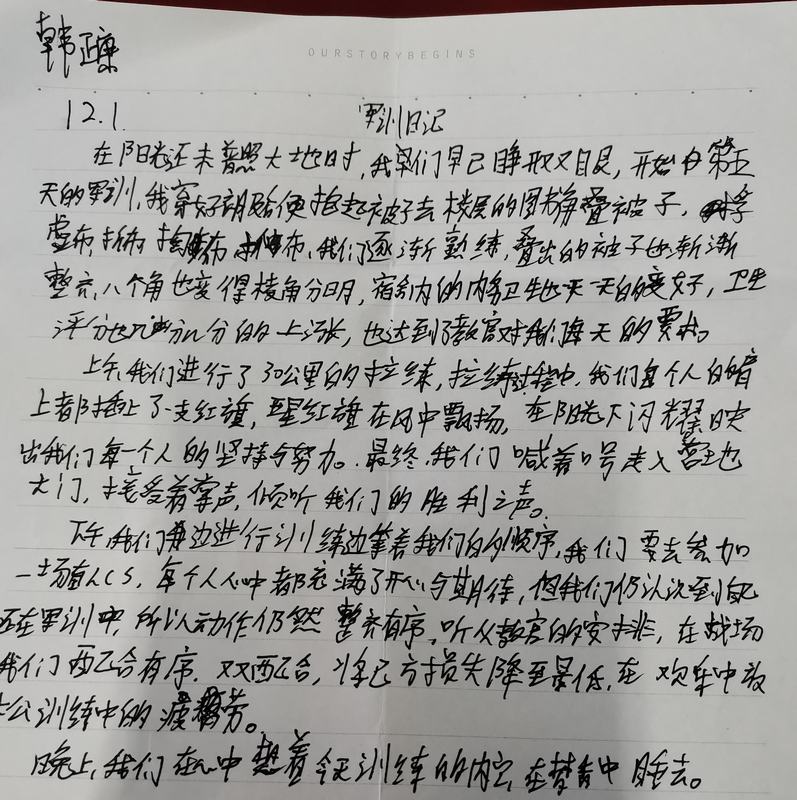 OURSTORYBEGINS
韩
12.1. 军训日记
在阳光还未普照大地时,我们早已睁开双眼,开始第五
天的军训,我穿好便抱起被子去楼层的图书角叠被子,
我们逐渐熟练,叠出的被子也渐渐
整齐,八个角也变得棱角分明,宿舍内的内务卫生也一天一天的变好,卫生
评分也几分几分的上涨,也达到了教官对我们每天的要求。
上午,我们进行了30公里的拉练,拉练过程中,我们每个人的肩
上都插上了一支红旗,五星红旗在风中飘扬,在阳光下闪耀映
出我们每一个人的坚持与努力。最终,我们喊着口号走入营地
大门,接受着掌声,倾听我们的胜利之声。
下午,我们边进行训练边等着我们的顺序,我们要去参加
一场真人CS,每个人心中都充满了开心与期待,但我们仍认识到自己
还在军训中,所以动作仍然整齐有序,听从教官的安排,在战场
我们配合有序,双双配合,将己方损失降至最低,在欢乐中放
松训练中的疲劳。
晚上,我们在心中想着今天训练的内容,在梦中睡去。